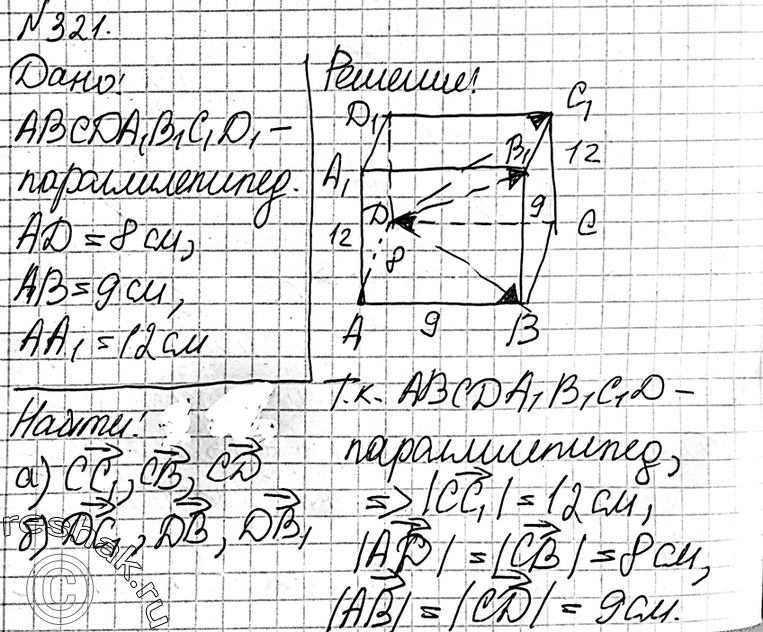 №321.
Дано:
ABCDA₁B₁C₁D₁ –
параллилепипед.
AD = 8 см,
AB = 9 см,
AA₁ = 12 см
Найти:
а) CC₁, CB, CD
б) DC₁, DB, DB₁
Решение:
D₁
C₁
A₁
B₁
12
D
9
C
12
8
A
9
B
Т.к. ABCDA₁B₁C₁D –
параллилепипед,
=> |CC₁| = 12 см,
|AD| = |CB| = 8 см,
|AB| = |CD| = 9 см.
reshak.ru
©